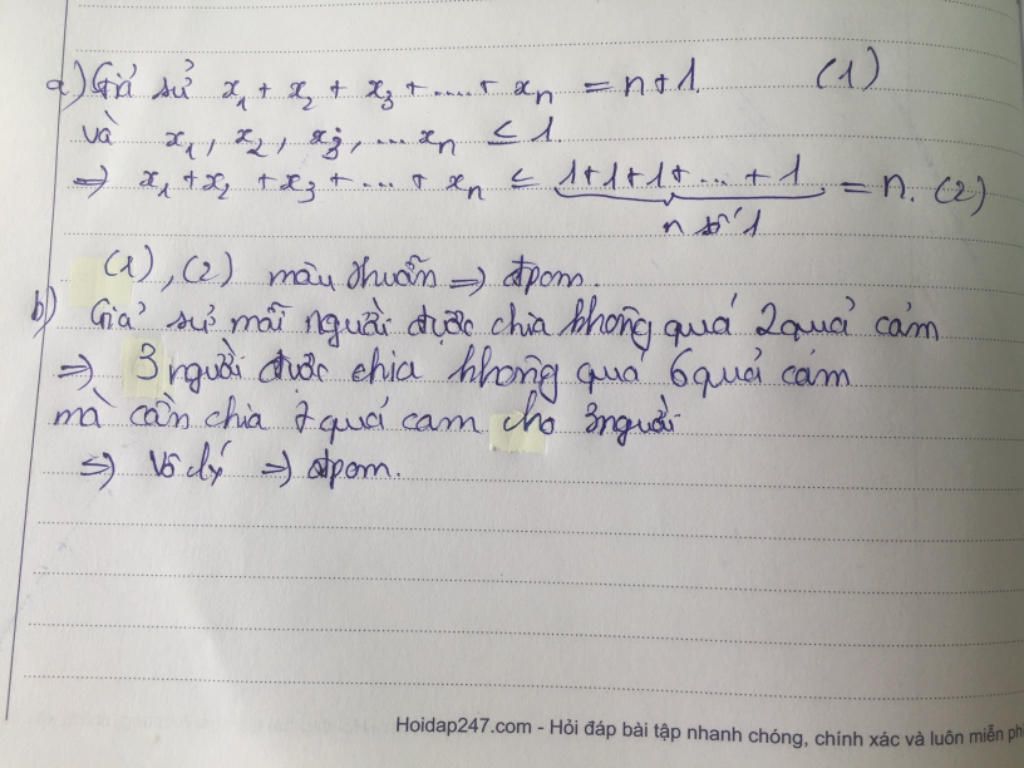 a) Giả sử x₁ + x₂ + x₃ + ..... + xₙ = n+1. (1)
và x₁, x₂, x₃, ... xₙ ≤ 1.
=> x₁ + x₂ + x₃ + ... + xₙ ≤ 1+1+1+ ... + 1 = n. (2)
n số 1
(1), (2) mâu thuẫn => đpcm.
b) Giả sử mỗi người được chia không quá 2 quả cam
=> 3 người được chia không quá 6 quả cam
mà cần chia 7 quả cam cho 3 người
=> Vô lý => đpcm.
Hoidap247.com - Hỏi đáp bài tập nhanh chóng, chính xác và luôn miễn ph